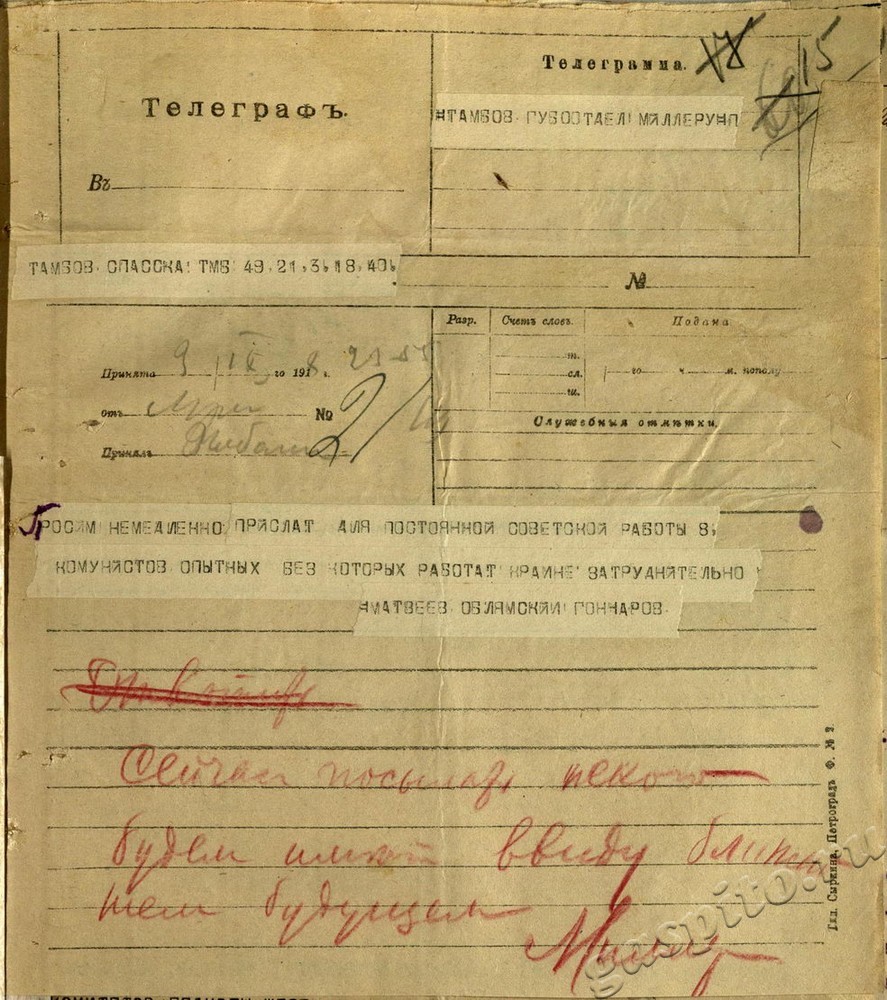 Телеграфъ.
Въ
Телеграмма.
15
НТАМБОВ ГУБОЭТДЕЛ МИЛЛЕРУНП
ТАМБОВ СПАССКА ТМБ 49 21 3 18 40
№
Разр. Счетъ словъ. Подана
т.
сл.
го ч. м. пополу
ш.
Принята 9 IX го 1918 г.
отъ № 2
Принялъ
Служебныя отмѣтки.
ПРОСИМ НЕМЕДЛЕННО ПРИСЛАТ ДЛЯ ПОСТОЯННОЙ СОВЕТСКОЙ РАБОТЫ 8
КОМУНИСТОВ ОПЫТНЫХ БЕЗ КОТОРЫХ РАБОТАТ КРАИНЕ ЗАТРУДНИТЕЛЬНО
НМАТВЕЕВ ОБЛЯМСКИИ ГОНЧАРОВ
Сейчас посылать некого
будем иметь ввиду ближай
шем будущем
Миллер
Тип. Сыркина, Петроградъ Ф. № 2.
gaspito.ru